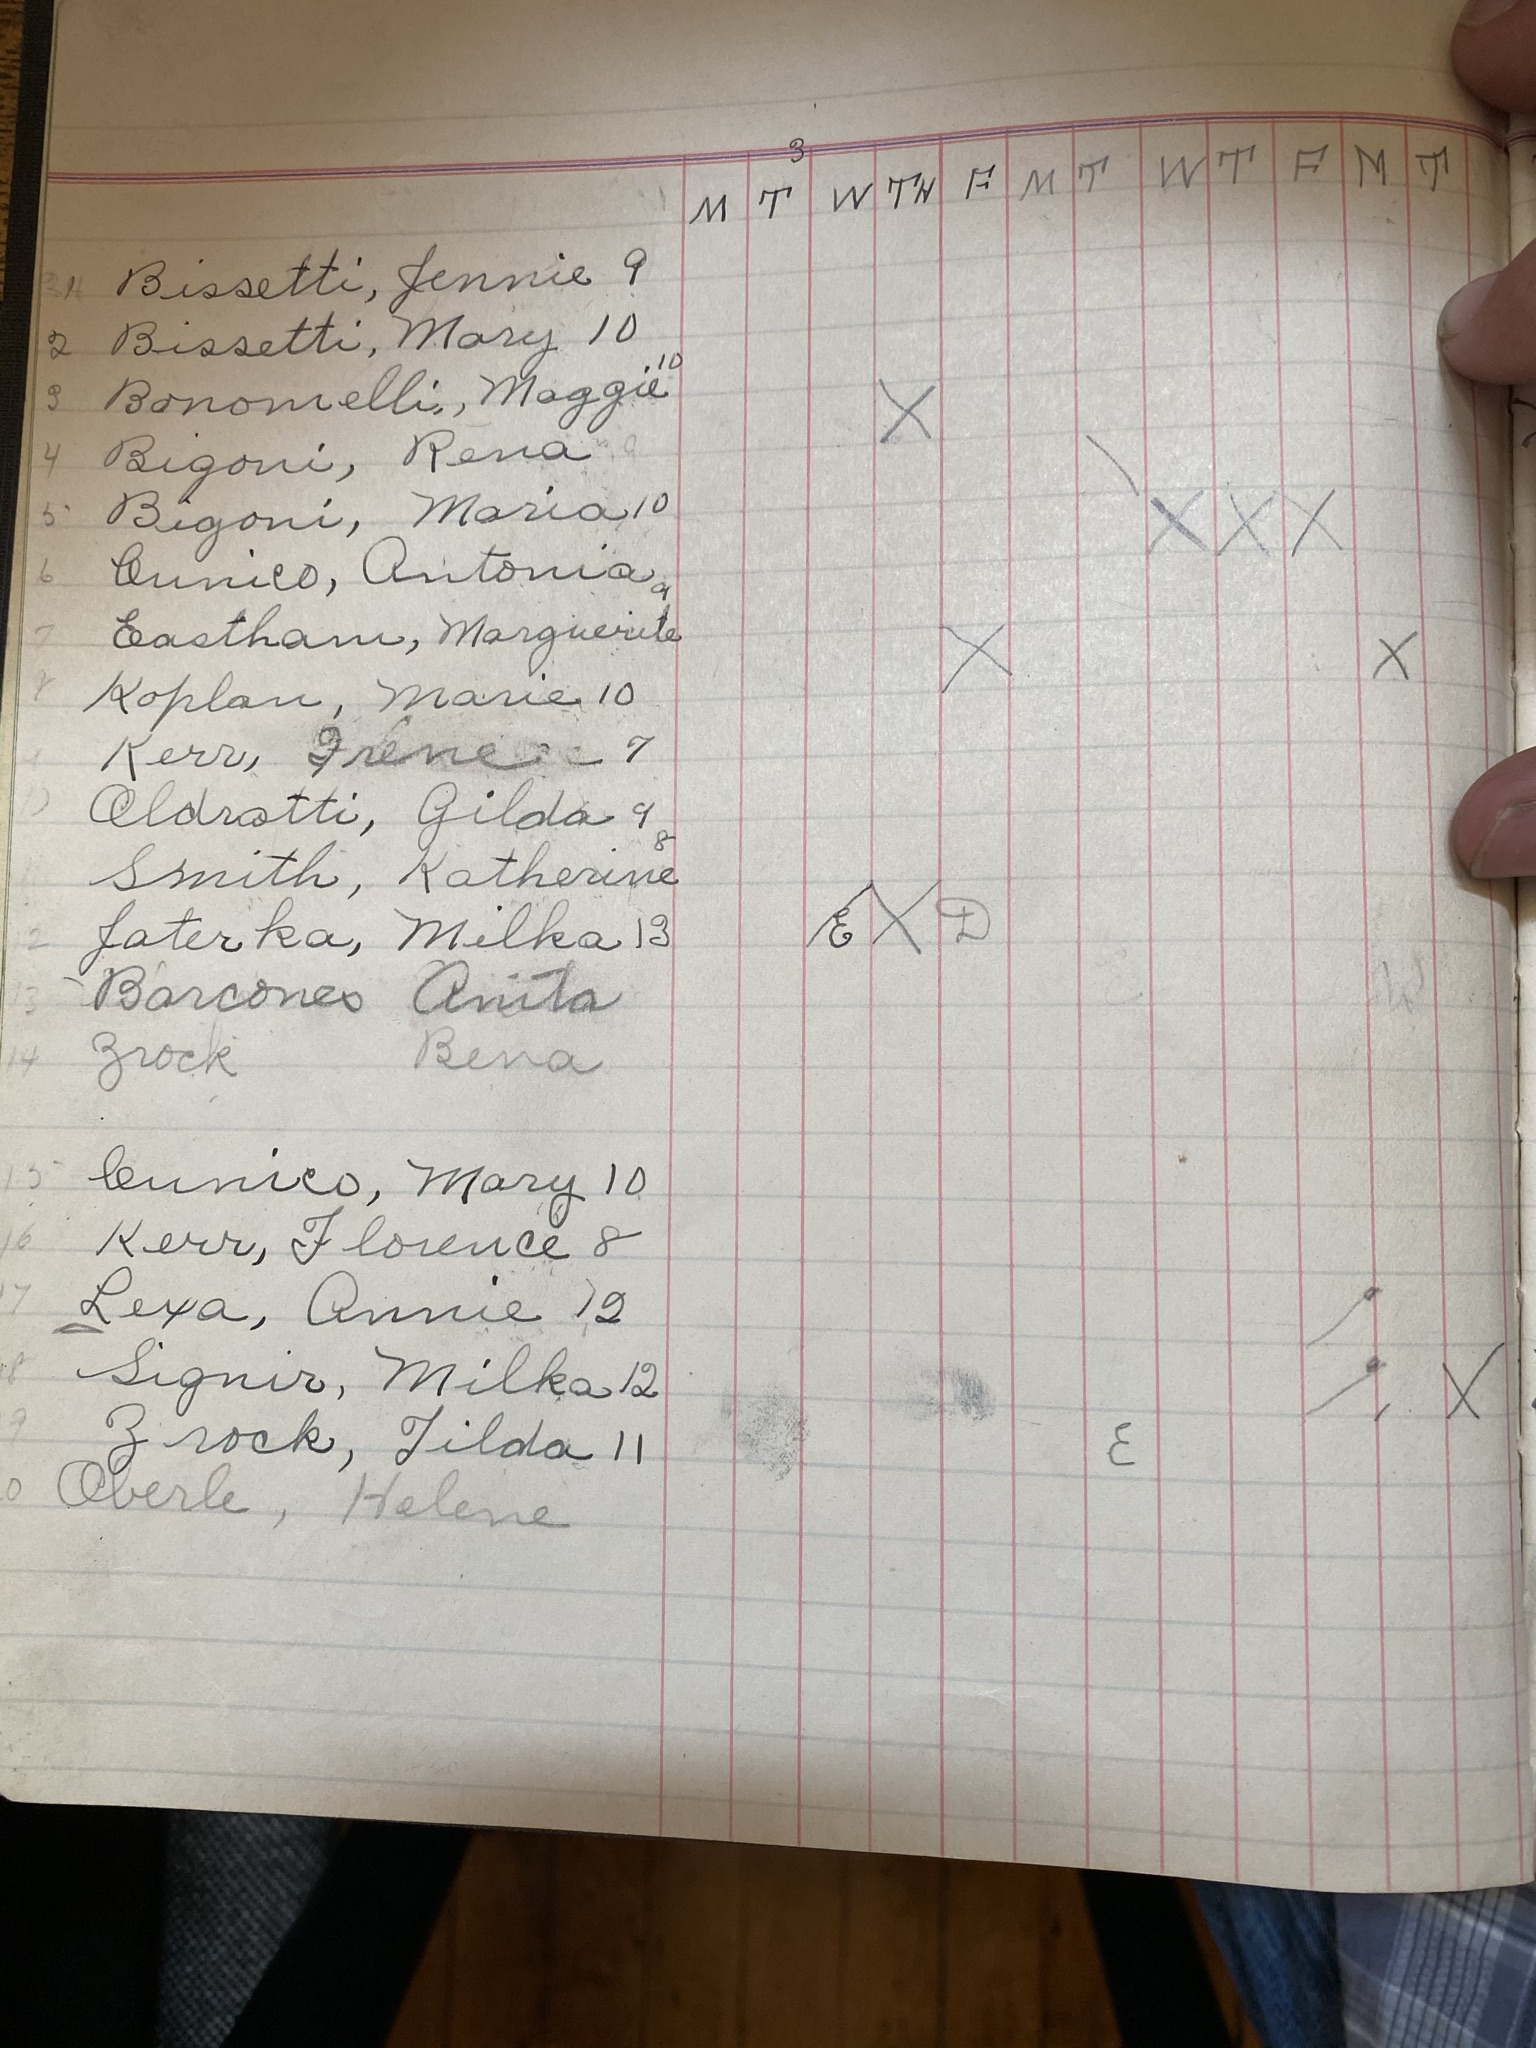 3
M T W TH F M T W T F M T
Bissetti, Jennie 9
2 Bissetti, Mary 10
3 Bonomelli, Maggie 10 X
4 Bigoni, Rena 9
5 Bigoni, Maria 10 X X X
6 Cunico, Antonia 9
7 Eastham, Marguerite X X
8 Koplan, Marie 10
Kerr, Irene 7
10 Oldratti, Gilda 9
11 Smith, Katherine 8
12 Jaterka, Milka 13 E X D
13 Barcones Anita
14 Zrock Bena
15 Cunico, Mary 10
16 Kerr, Florence 8
17 Lexa, Annie 12
18 Signir, Milka 12 X
9 Zrock, Tilda 11 E
0 Oberle, Helene